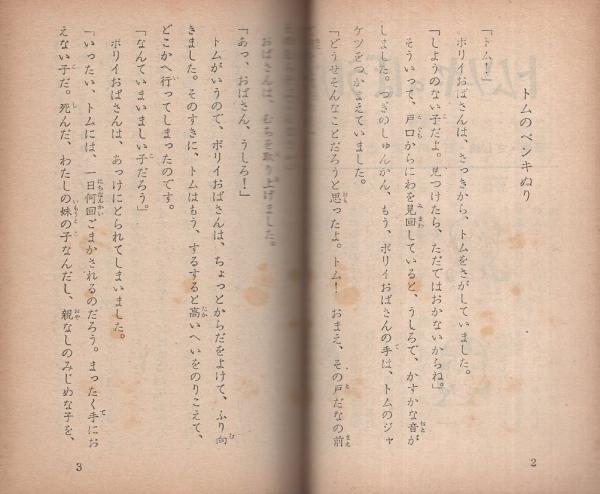 トムのペンキぬり
「トム！」
ポリイおばさんは、さっきから、トムをさがしていました。
「しようのない子だよ。見つけたら、ただではおかないからね。」
そういって、戸口からにわを見回していると、うしろで、かすかな音が
しました。つぎのしゅんかん、もう、ポリイおばさんの手は、トムのジャ
ケツをつかまえていました。
「どうせそんなことだろうと思ったよ。トム！おまえ、その戸だなの前
2
おばさんは、むちを取り上げました。
「あっ、おばさん、うしろ！」
トムがいうので、ポリイおばさんは、ちょっとからだをよけて、ふり向
きました。そのすきに、トムはもう、するすると高いへいをのりこえて、
どこかへ行ってしまったのです。
「なんていまいましい子だろう。」
ポリイおばさんは、あっけにとられてしまいました。
「いったい、トムには、一日何回ごまかされるのだろう。まったく手にお
えない子だ。死んだ、わたしの妹の子なんだし、親なしのみじめな子を、
3